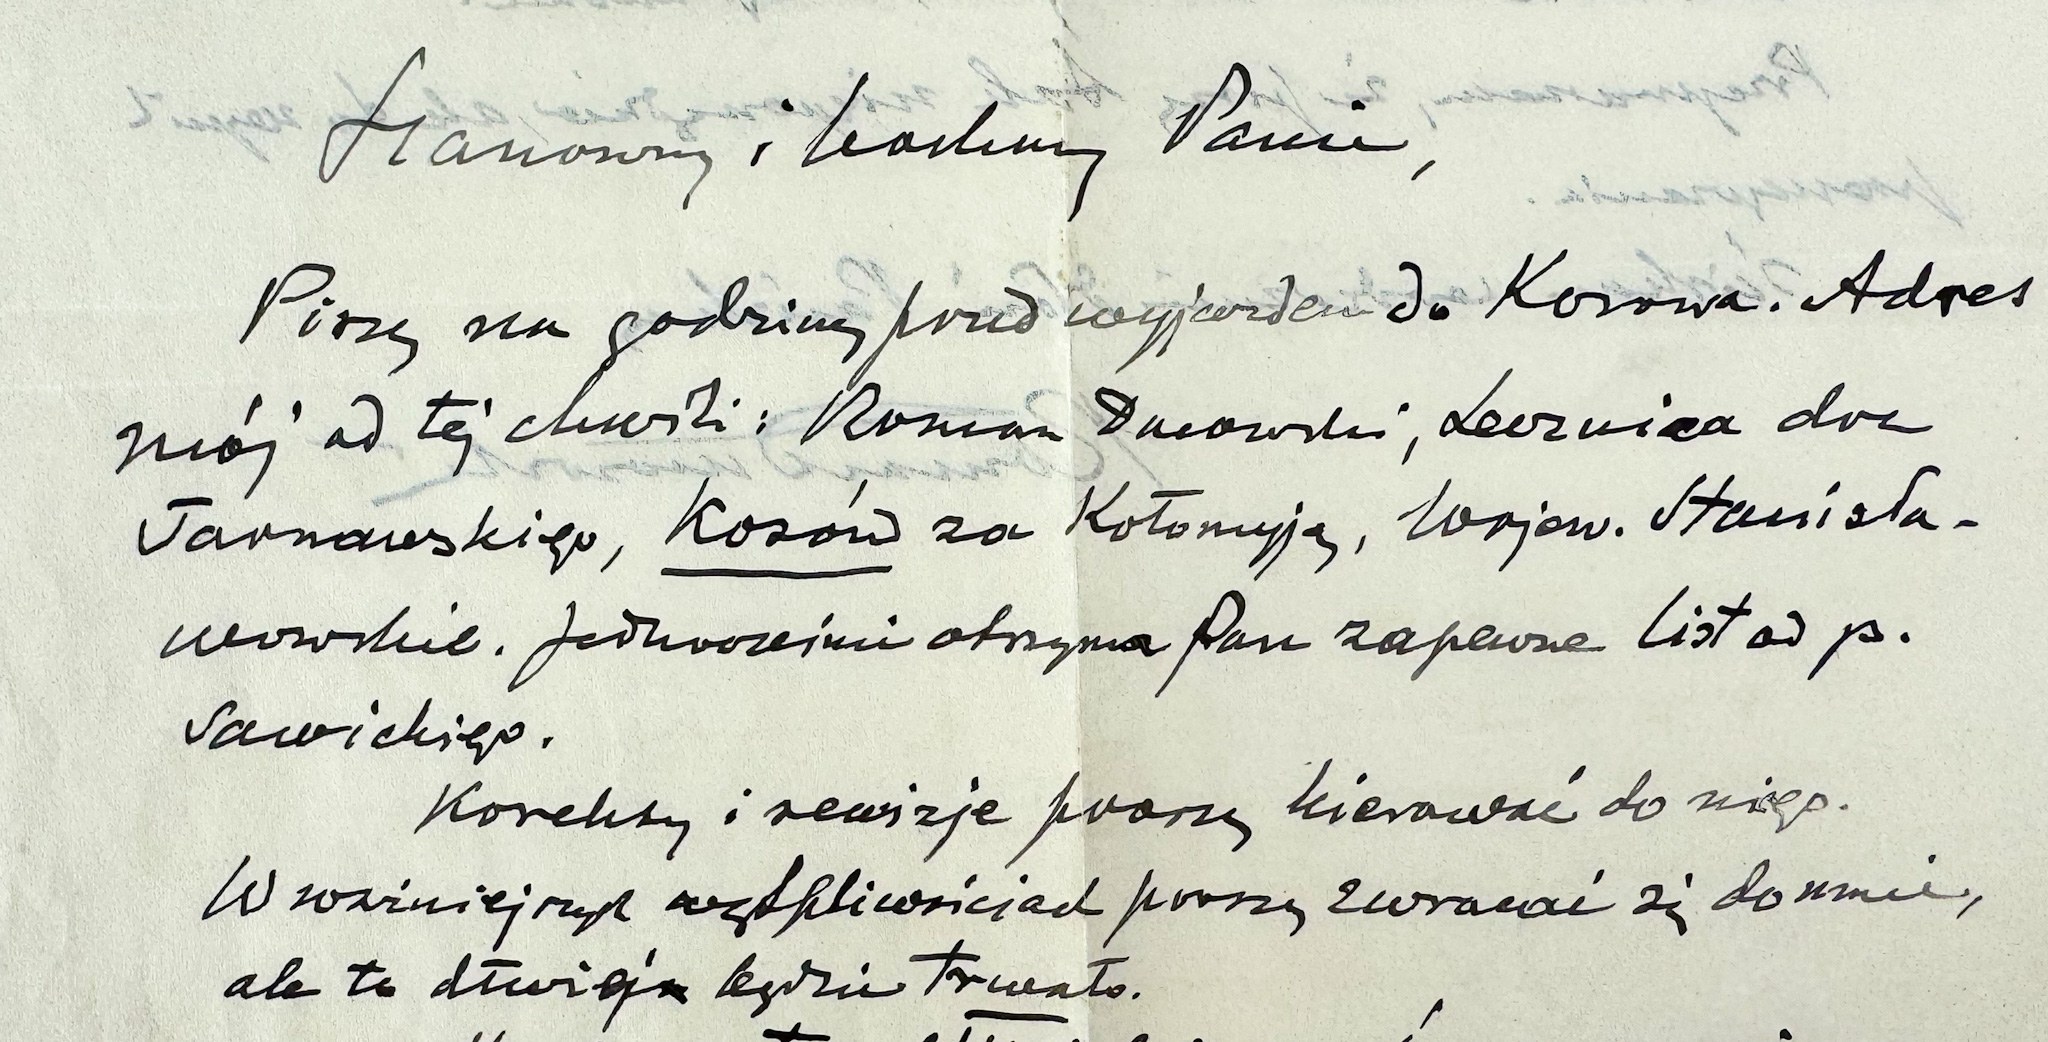 Szanowny i kochany Panie,
Piszę na godzinę przed wyjazdem do Kosowa. Adres
mój od tej chwili: Roman Dmowski, Lecznica dra
Tarnawskiego, Kosów za Kołomyją, Wojew. Stanisła-
wowskie. Jednocześnie otrzyma Pan zapewne list od p.
Sawickiego.
Korekty i rewizje proszę kierować do niego.
W ważniejszych wątpliwościach proszę zwracać się do mnie,
ale to dłużej będzie trwało.